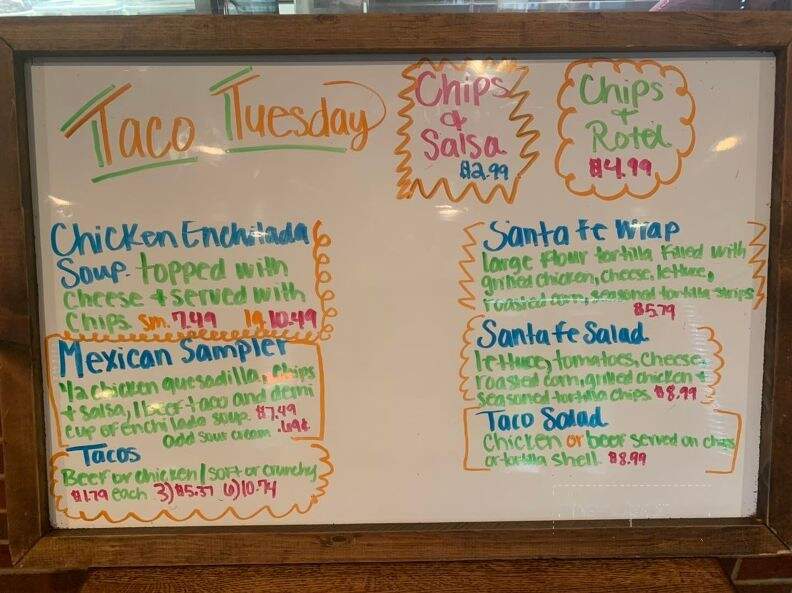 Taco Tuesday
Chips
&
Salsa
$2.99
Chips
+
Rotel
$4.99
Chicken Enchilada
Soup topped with
cheese + served with
Chips. sm. 7.49 lg 10.49
Mexican Sampler
1/2 chicken quesadilla, chips
+ salsa, 1 beef taco and demi
cup of enchilada soup. $7.49
add sour cream .69¢
Tacos
Beef or chicken / soft or crunchy
$1.79 each 3) $5.37 6) 10.74
Santa Fe Wrap
large flour tortilla filled with
grilled chicken, cheese, lettuce,
roasted corn, seasoned tortilla strips
$5.79
Santa Fe Salad
lettuce, tomatoes, cheese,
roasted corn, grilled chicken +
seasoned tortilla chips. $8.99
Taco Salad
Chicken or beef served on chips
or tortilla shell. $8.99